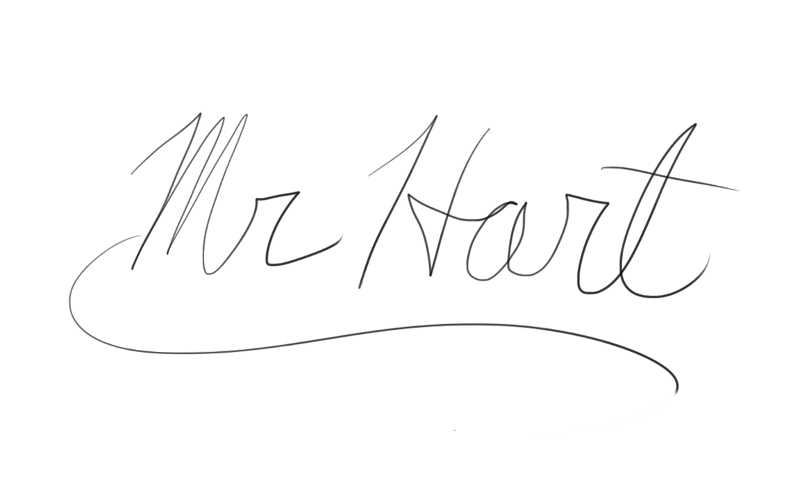 Mr Hart